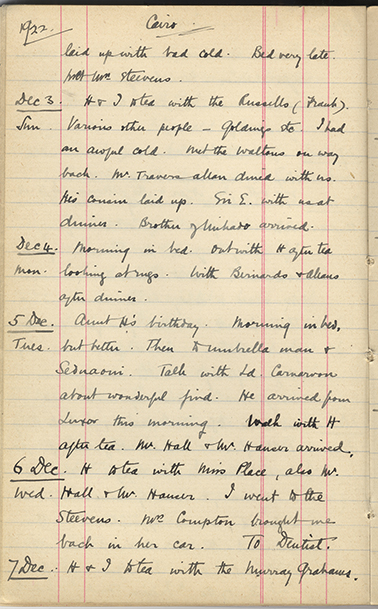 1922. Cairo.
laid up with bad cold. Bed very late.
Mrs Steevens.
Dec 3. H & I to tea with the Russells (Frank).
Sun. Various other people – Goldings etc. I had
an awful cold. Met the Waltons on way
back. Mr. Travers Allan dined with us.
His cousin laid up. Sir E. with us at
dinner. Brother of Mikado arrived.
Dec 4. Morning in bed. Out with H after tea
Mon. looking at rugs. With Bernards & Allans
after dinner.
5 Dec. Aunt H's birthday. Morning in bed,
Tues. but better. Then to umbrella man &
Sednaoui. Talk with Ld Carnarvon
about wonderful find. He arrived from
Luxor this morning. Walk with H
after tea. Mr. Hall & Mr. Hauser arrived.
6 Dec. H to tea with Miss Place, also Mr.
Wed. Hall & Mr. Hauser. I went to the
Steevens. Mrs Compton brought me
back in her car. To Dentist.
7 Dec. H & I to tea with the Murray Grahams.